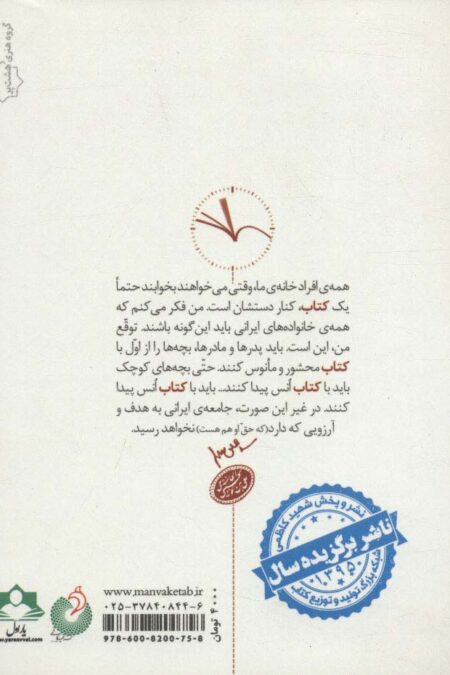 گروه هنری هشت‌بر
همه‌ی افراد خانه‌ی ما، وقتی می‌خواهند بخوابند حتماً
یک کتاب، کنار دستشان است. من فکر می‌کنم که
همه‌ی خانواده‌های ایرانی باید این‌گونه باشند. توقّع
من، این است. باید پدرها و مادرها، بچه‌ها را از اوّل با
کتاب محشور و مأنوس کنند. حتّی بچه‌های کوچک
باید با کتاب اُنس پیدا کنند... باید با کتاب اُنس پیدا
کنند. در غیر این صورت، جامعه‌ی ایرانی به هدف و
آرزویی که دارد(که حقّ او هم هست) نخواهد رسید.
نشر و پخش شهید کاظمی
ناشر برگزیده سال
۱۳۹۵
شبکه بزرگ تولید و توزیع کتاب
www.manvaketab.ir
۰۲۵-۳۷۸۴۰۸۴۴-۶
978-600-8200-75-8
۴۰۰۰ تومان
یار اول
www.yareavvel.com